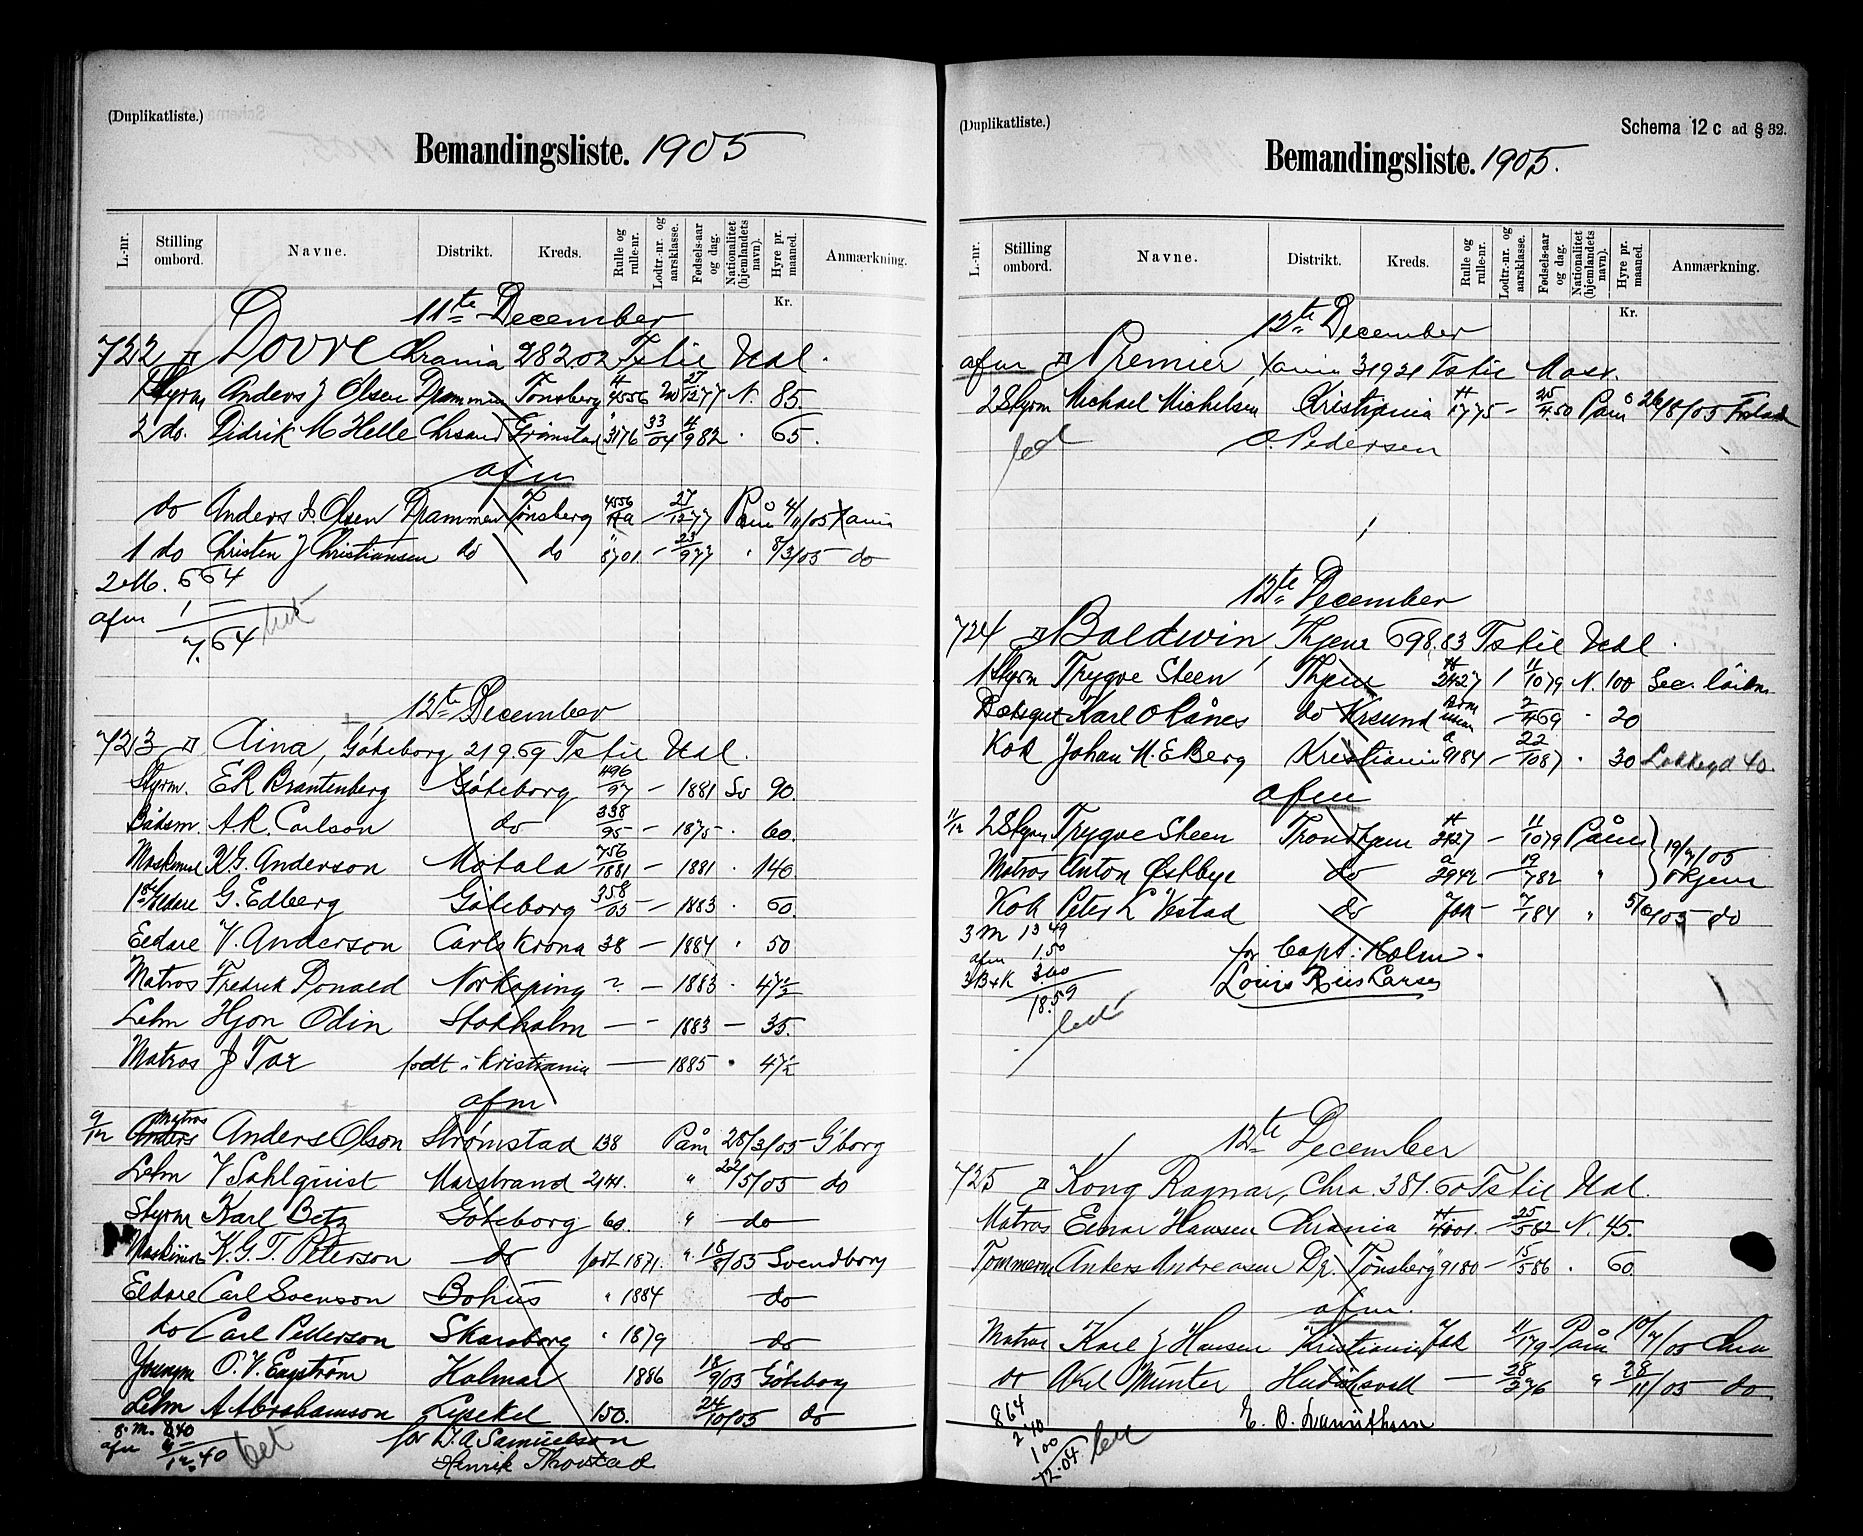 (Duplikatliste.)
Bemandingsliste. 1905
L.-nr. Stilling ombord. Navne. Distrikt. Kreds. Rulle og rulle-nr. Lodtr.-nr. og aarsklasse. Fødsels-aar og dag. Nationalitet (hjemlandets navn). Hyre pr. maaned. Anmærkning.
Kr.
11te December
722 Dovre Chrania 282.02 Ts til Udl.
1 Styrm Anders J Olsen Drammen Tønsberg 4556 27/12 77 N. 85.
2 do. Didrik M Helle Chrsand Grimstad 3176 33/04 4/9 82 . 65.
afm
do Anders J. Olsen Drammen Tønsberg 4556 – 27/12 77 Påm 4/11/05 Xania
1 do Christen J Christiansen do do 8701 – 23/9 77 " 8/3/05 do
2 M. 6 64
afm 1 –
7.64 bet
12te December
723 Aina, Göteborg 219.69 Ts til Udl.
Styrm. E R Brantenberg Göteborg 496/97 – 1881 Sv 90.
Bådsm A. R. Carlson do 338/95 – 1875 . 60.
Maskinist K G. Anderson Motala 756/1881 – 1881 . 140
1ste Eldare G. Edberg Göteborg 358/03 – 1883 . 60.
Eldare V. Anderson Carlskrona 38 – 1884 " 50
Matros Fredrik Donald Norkøping ? – 1883 . 47½
Letm Hjon Odin Stokholm – – 1883 – 35.
Matros J Tax født i Kristiania – 1885 " 47½
afm
9/12 Matros Anders Olson Strømstad 138 Påm 28/3/05 Gborg
Letm V Sahlquist Marstrand 2141. " 22/5/05 do
Styrm Karl Betz Göteborg 60. " – do –
Maskinist K. G. T. Peterson do født 1871. " 18/8/05 Svendborg
Eldare Carl Svenson Bohus " 1884 do
do Carl Petterson Skaraborg " 1879 do
Youngm O. V. Engström Kalmar 1886 18/9/05 Göteborg
Letm A Abrahamson Lysekil 150. 24/10/05 do
8. M. 8.40
afm 4 –
12.40 bet
for D. A. Samuelson
Henrik Throstad
(Duplikatliste.)
Schema 12 c ad § 32.
Bemandingsliste. 1905.
L.-nr. Stilling ombord. Navne. Distrikt. Kreds. Rulle og rulle-nr. Lodtr.-nr. og aarsklasse. Fødsels-aar og dag. Nationalitet (hjemlandets navn). Hyre pr. maaned. Anmærkning.
Kr.
12te December
afm Premier, Xania 319.21 Ts til
2 Styrm Michael Michelsen Kristiania 1775 – 25/4 50 Påm 26/8/05 Frstad
bet O. Pedersen
12te December
724 Baldwin Thjem 698.83 Ts til Udl.
1 Styrm Trygve Steen Thjem 2427 1 11/10 79 N. 100
Karl O Lånes do Krsund – 2/4 69 " 20
Kok Johan M. E Berg Kristiania 9184 – 22/10 87 . 30 40.
afm
11/12 2 Styrm Trygve Steen Trondhjem 2427 – 11/10 79 Påm 19/7/05
Matros Anton Østbye do 2942 – 19/7 82 " Thjem
Kok Peter L Vestad do Jak – 7/1 84 " 5/6/05 do
3 M 13 49
afm 1.50
3 B+K 3.00
18.59
bet
for Capt: Holm.
Louis Riis Larsen
12te December
725 Kong Ragnar, Chra. 381.60 Ts til Udl.
Matros Einar Hansen Chrania 4001. – 25/5 82 N. 45.
Tømmerm Anders Andreasen Dr. Tønsberg 9180 – 15/5 86 . 60.
afm.
Matros Karl J Hansen Kristiania Jak 11/1 79 Påm 10/7/05 Chra
do Axel Münter Hudiksvall – 28/2 76 " 28/11/05 do
8 64
2 40
1 00
12.04. bet